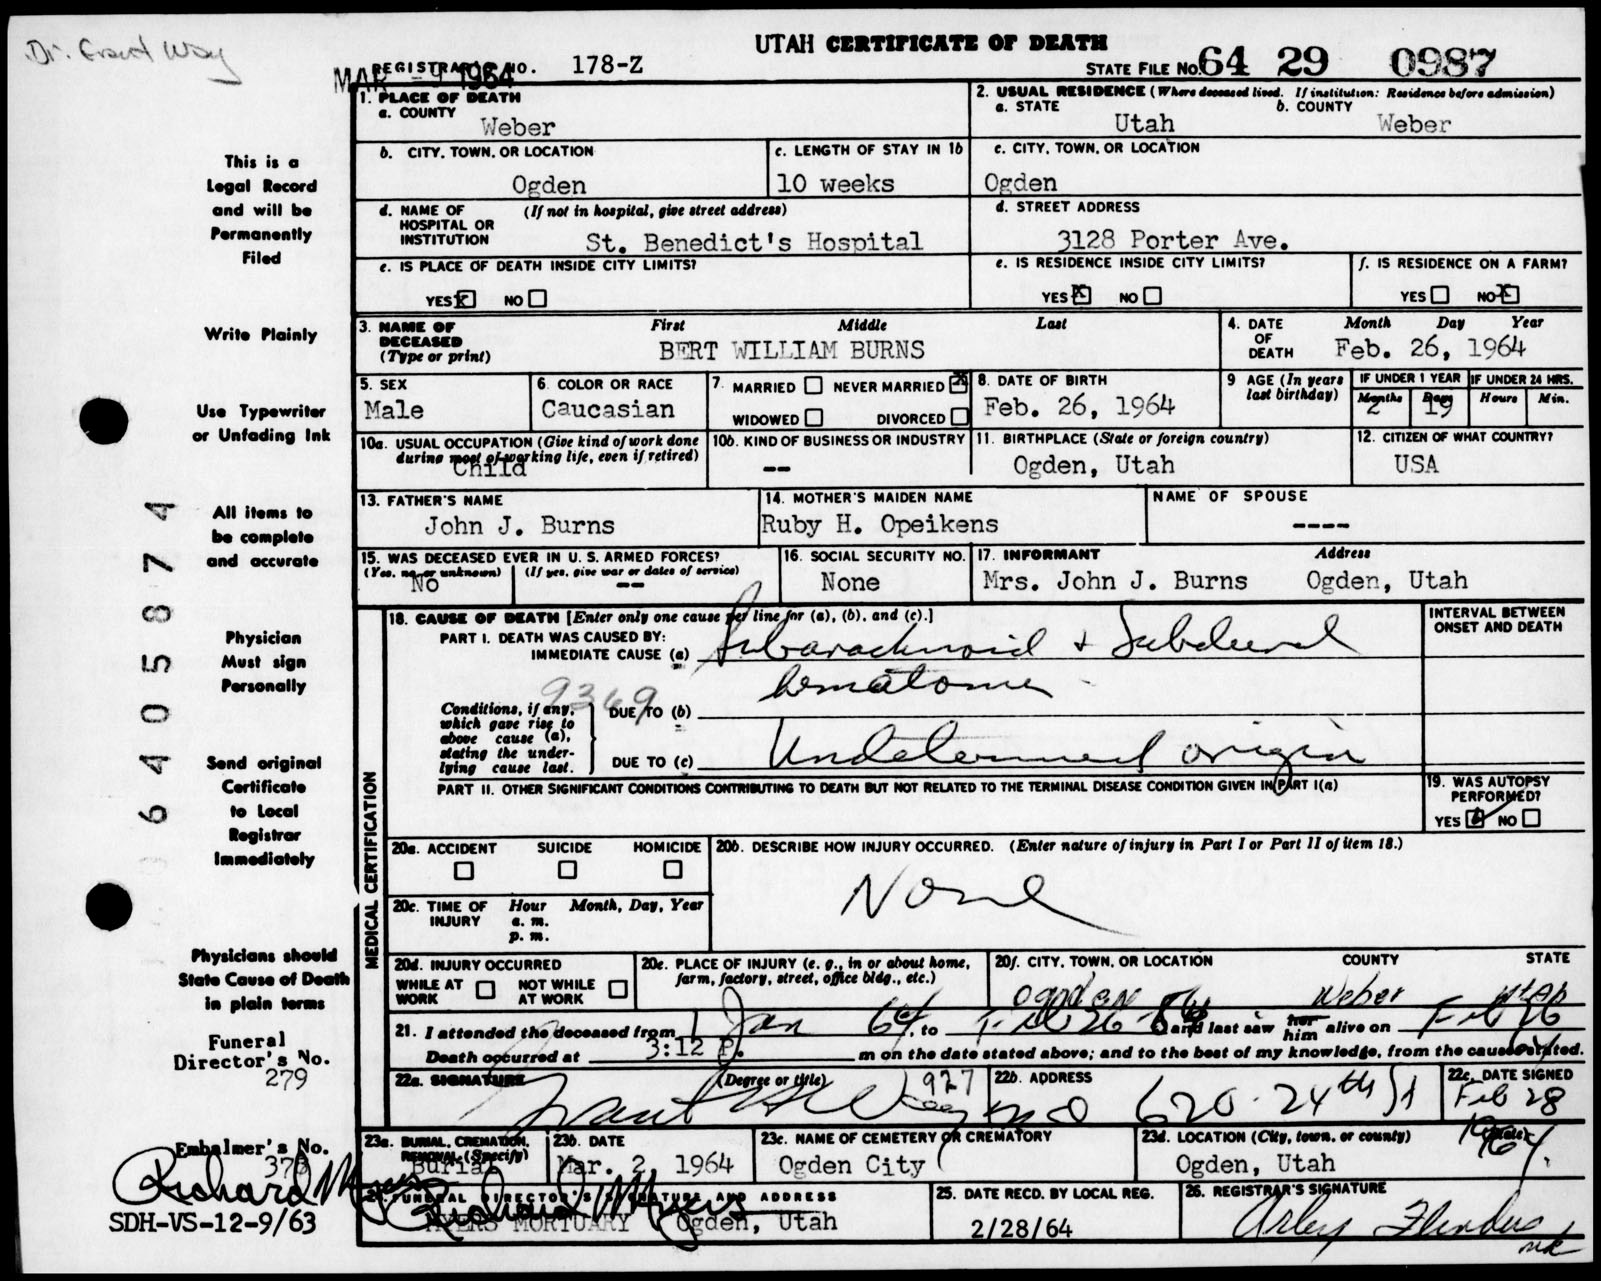 Dr. Grant Way
UTAH CERTIFICATE OF DEATH
MAR - 9 1964
REGISTRAR'S NO. 178-Z
STATE FILE NO. 64 29 0987
1. PLACE OF DEATH
a. COUNTY
Weber
2. USUAL RESIDENCE (Where deceased lived. If institution: Residence before admission)
a. STATE b. COUNTY
Utah Weber
b. CITY, TOWN, OR LOCATION
Ogden
c. LENGTH OF STAY IN 1b
10 weeks
c. CITY, TOWN, OR LOCATION
Ogden
d. NAME OF HOSPITAL OR INSTITUTION (If not in hospital, give street address)
St. Benedict's Hospital
d. STREET ADDRESS
3128 Porter Ave.
e. IS PLACE OF DEATH INSIDE CITY LIMITS?
YES X NO
e. IS RESIDENCE INSIDE CITY LIMITS?
YES X NO
f. IS RESIDENCE ON A FARM?
YES NO X
3. NAME OF DECEASED (Type or print)
First Middle Last
BERT WILLIAM BURNS
4. DATE OF DEATH
Month Day Year
Feb. 26, 1964
5. SEX
Male
6. COLOR OR RACE
Caucasian
7. MARRIED NEVER MARRIED X
WIDOWED DIVORCED
8. DATE OF BIRTH
Feb. 26, 1964
9 AGE (In years last birthday)
IF UNDER 1 YEAR IF UNDER 24 HRS.
Months Days Hours Min.
2 19
10a. USUAL OCCUPATION (Give kind of work done during most of working life, even if retired)
Child
10b. KIND OF BUSINESS OR INDUSTRY
--
11. BIRTHPLACE (State or foreign country)
Ogden, Utah
12. CITIZEN OF WHAT COUNTRY?
USA
13. FATHER'S NAME
John J. Burns
14. MOTHER'S MAIDEN NAME
Ruby H. Opeikens
NAME OF SPOUSE
----
15. WAS DECEASED EVER IN U. S. ARMED FORCES?
(Yes, no, or unknown) (If yes, give war or dates of service)
No --
16. SOCIAL SECURITY NO.
None
17. INFORMANT Address
Mrs. John J. Burns Ogden, Utah
18. CAUSE OF DEATH [Enter only one cause per line for (a), (b), and (c).]
PART I. DEATH WAS CAUSED BY:
IMMEDIATE CAUSE (a) Subarachnoid & Subdural
hematoma
9369
Conditions, if any, which gave rise to above cause (a), stating the underlying cause last.
DUE TO (b)
DUE TO (c) Undetermined origin
INTERVAL BETWEEN ONSET AND DEATH
PART II. OTHER SIGNIFICANT CONDITIONS CONTRIBUTING TO DEATH BUT NOT RELATED TO THE TERMINAL DISEASE CONDITION GIVEN IN PART I(a)
19. WAS AUTOPSY PERFORMED?
YES NO
MEDICAL CERTIFICATION
20a. ACCIDENT SUICIDE HOMICIDE
20b. DESCRIBE HOW INJURY OCCURRED. (Enter nature of injury in Part I or Part II of item 18.)
None
20c. TIME OF INJURY Hour Month, Day, Year
a. m.
p. m.
20d. INJURY OCCURRED
WHILE AT WORK NOT WHILE AT WORK
20e. PLACE OF INJURY (e. g., in or about home, farm, factory, street, office bldg., etc.)
20f. CITY, TOWN, OR LOCATION COUNTY STATE
Ogden Weber Utah
21. I attended the deceased from 1 Jan 64, to Feb 26 64 and last saw her him alive on Feb 26 64
Death occurred at 3:12 P. m on the date stated above; and to the best of my knowledge, from the causes stated.
22a. SIGNATURE (Degree or title) 927
Grant H Way MD
22b. ADDRESS
620-24th St
22c. DATE SIGNED
Feb 28
1964.
23a. BURIAL, CREMATION, REMOVAL (Specify)
Burial
23b. DATE
Mar. 2, 1964
23c. NAME OF CEMETERY OR CREMATORY
Ogden City
23d. LOCATION (City, town, or county) (State)
Ogden, Utah
24. FUNERAL DIRECTOR'S SIGNATURE AND ADDRESS
Richard Myers
MYERS MORTUARY Ogden, Utah
25. DATE RECD. BY LOCAL REG.
2/28/64
26. REGISTRAR'S SIGNATURE
Arley Flinders
mk
This is a
Legal Record
and will be
Permanently
Filed
Write Plainly
Use Typewriter
or Unfading Ink
All items to
be complete
and accurate
Physician
Must sign
Personally
Send original
Certificate
to Local
Registrar
Immediately
Physicians should
State Cause of Death
in plain terms
Funeral
Director's No.
279
Embalmer's No.
373
Richard Myers
SDH-VS-12-9/63
64005874